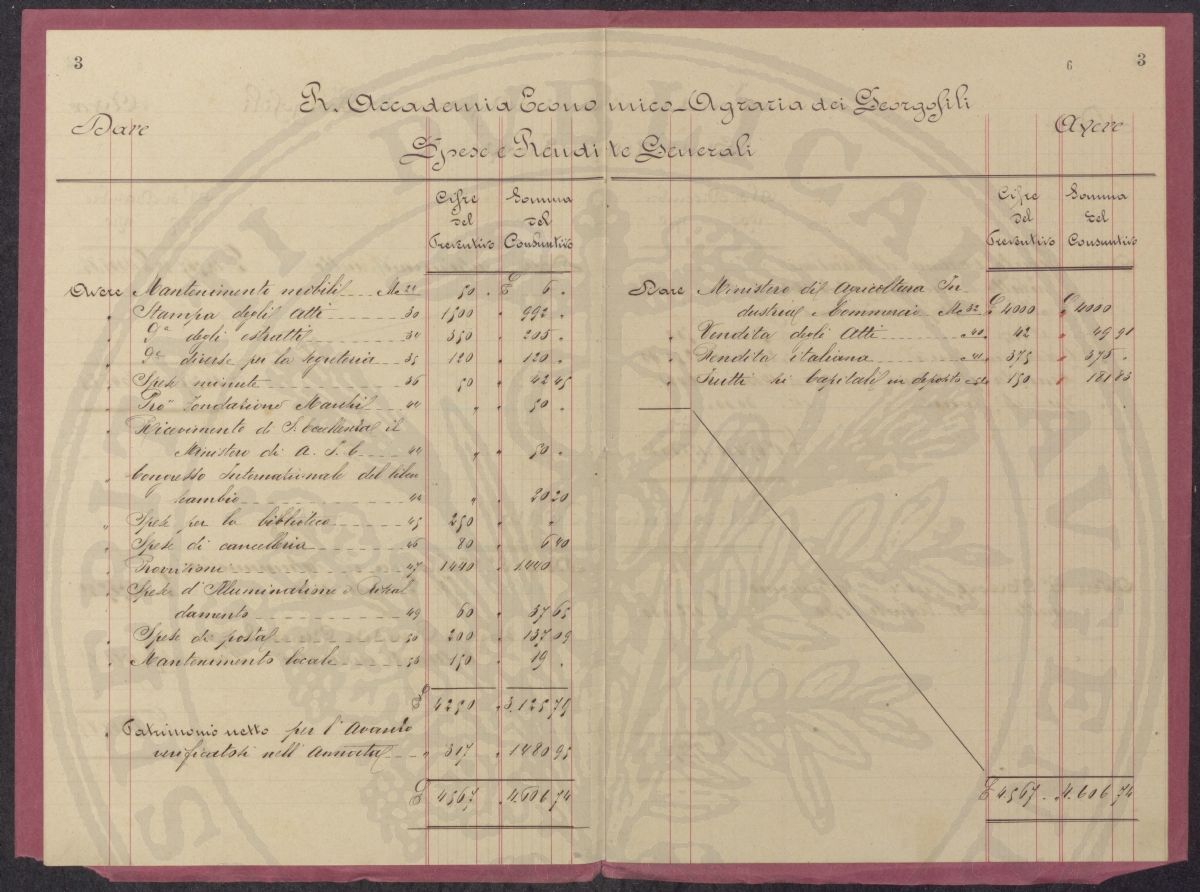 3
6
3
R. Accademia Economico-Agraria dei Georgofili
Dare
Avere
Spese e Rendite Generali
Cifre del Preventivo
Somma del Consuntivo
Avere Mantenimento mobili 50 £ 6
" Stampa degli Atti 30 1500 " 992
" Da degli estratti 34 350 " 205
" De diverse per la segreteria 35 120 " 120
" Spese minute 36 50 " 42 45
" Fondazione 44 " " 50
" Ricevimento di S. Eccellenza il
Ministero di A. I. C. 44 " " 50
" Congresso Internazionale del liberi
scambio 44 " 20 20
" Spese per la biblioteca 45 250 " "
" Spese di cancelleria 46 80 " 6 40
" Provvisioni 47 1440 " 1.440
" Spese d'Illuminazione e Riscal
damento 49 60 " 37 65
" Spese di postal 50 200 " 137 09
" Mantenimento locale 150 " 19
£ 4250 " 3.125 79
" Patrimonio netto per l'Avanzo
verificatosi nell'Annata " 317 " 1480 95
£ 4567 " 4.606 74
Cifre del Preventivo
Somma del Consuntivo
Dare Ministero di Agricoltura In
dustria Commercio 32 £ 4000 £ 4000
" Vendita degli Atti 40 " 42 " 49 91
" Rendita italiana 41 " 375 " 375
" Frutti di Capitali in deposito " 150 " 181 83
£ 4567 " 4.606 74